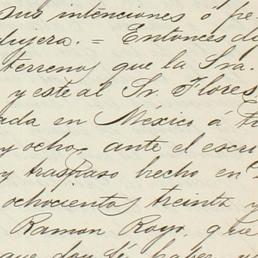 sus intenciones ó pe
dujera. = Entonces di
terrenos que la Sra.
y este al Sr. Flores
ada en México á tr
y ocho, ante el escri
y traspaso hecho en
ochocientos treinta y
Ramon Rayo, que
que doy fé haber